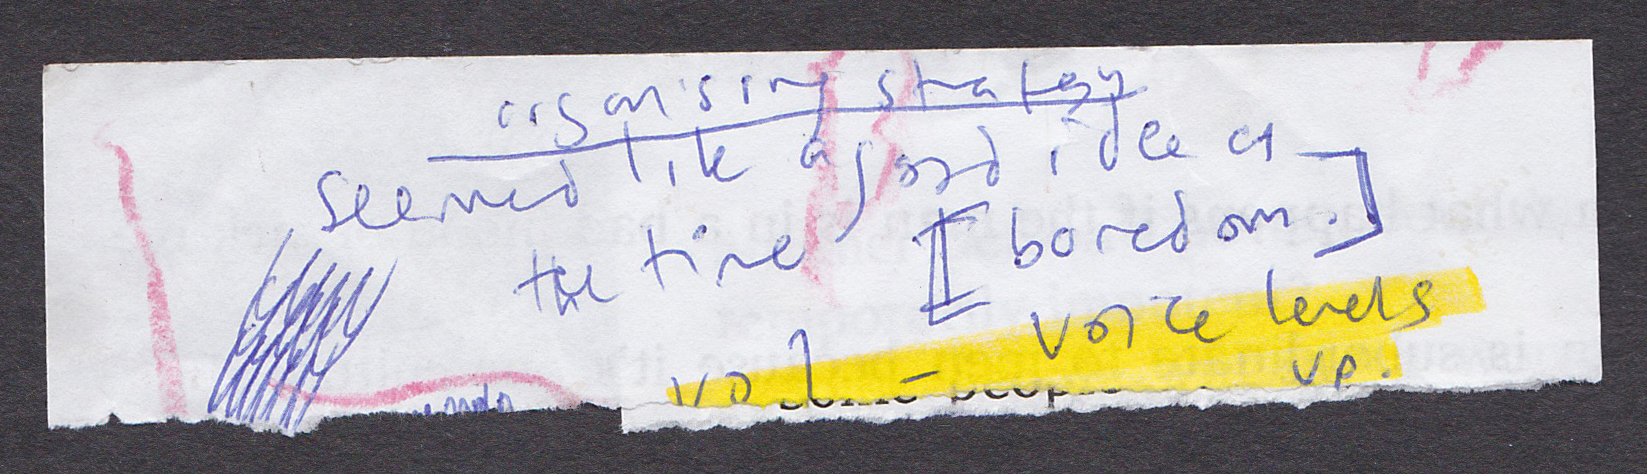 organising strategy
seemed like a good idea at
the time [boredom.]
voice levels
vol - up.
some people